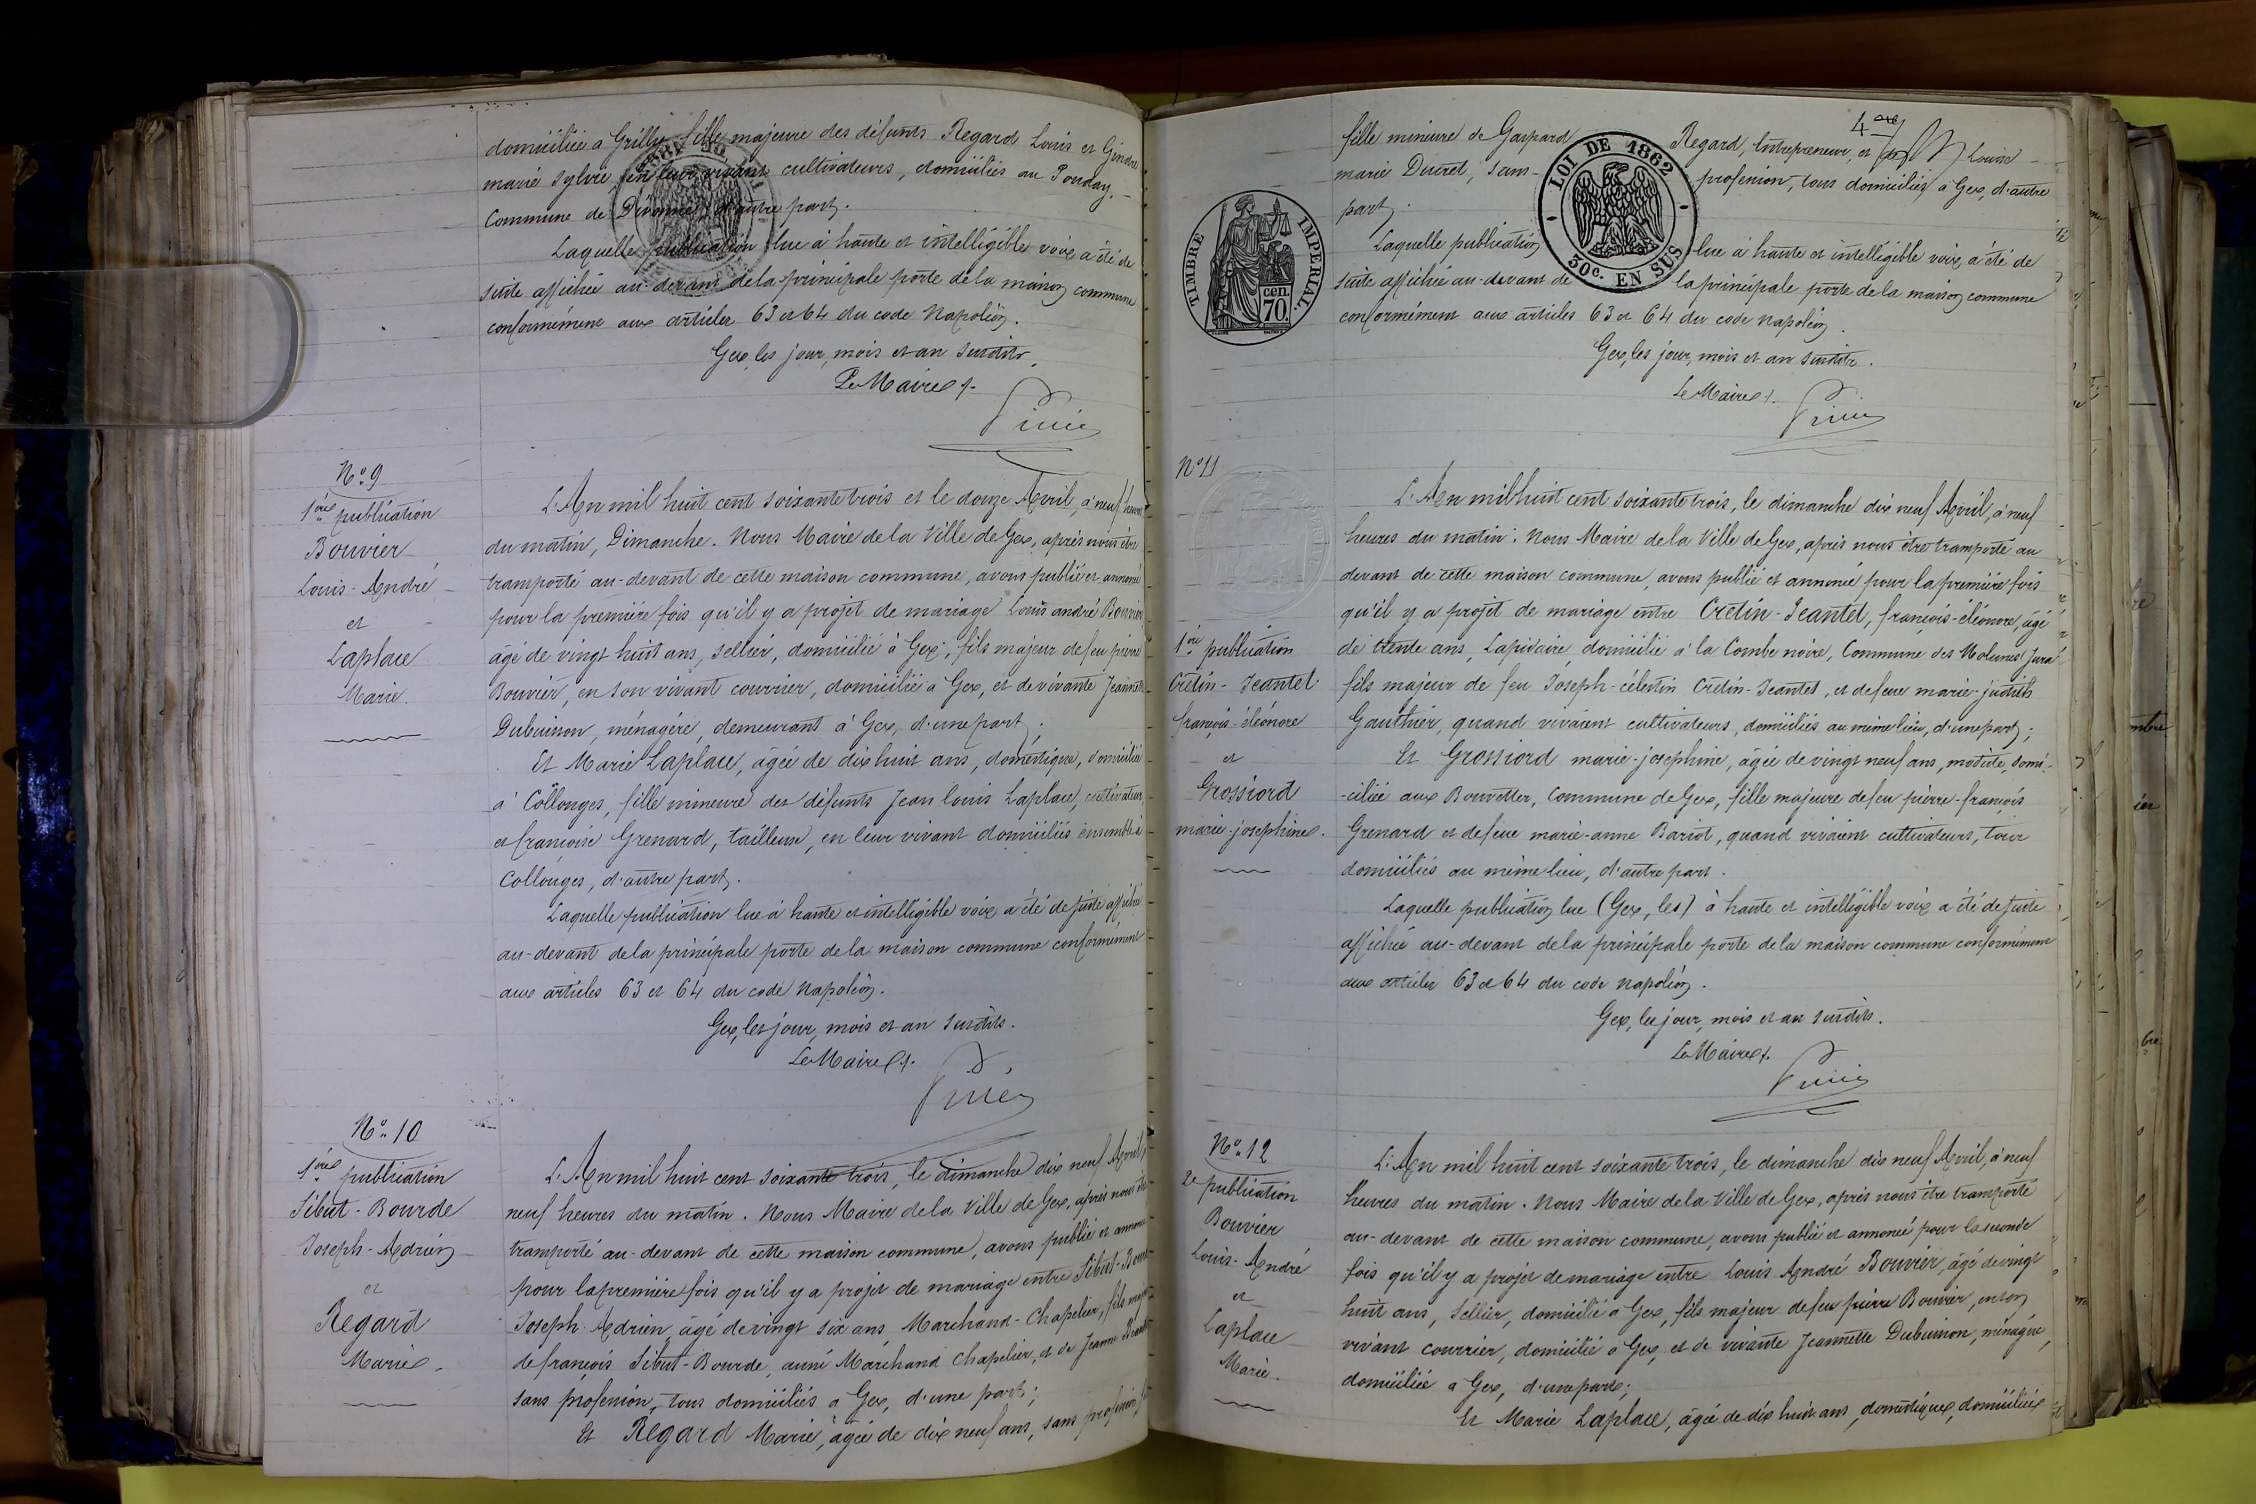 domiciliée a Grilly fille majeure des défunts Regard Louis et Gindre
marie Sylvie en leur vivant cultivateurs, domiciliés au Pouday,
Commune de Divonne, d'autre part.
Laquelle publication lue à haute et intelligible voix a été de
suite affichée au-devant de la principale porte de la maison commune
conformément aux articles 63 et 64 du code Napoléon.
Gex, les jour, mois et an susdits.
Le Maire
N° 9
1ère publication
Bouvier
Louis-André
et
Laplace
Marie.
L'An mil huit cent soixante trois et le douze Avril, à neuf heures
du matin, Dimanche. Nous Maire de la Ville de Gex, après nous être
transporté au-devant de cette maison commune, avons publié et annoncé
pour la première fois qu'il y a projet de mariage Louis andré Bouvier
âgé de vingt huit ans, sellier, domicilié à Gex, fils majeur de feu pierre
Bouvier, en son vivant courrier, domicilié à Gex, et de vivante Jeannette
Dubuisson, ménagère, demeurant à Gex, d'une part;
Et Marie Laplace, âgée de dix huit ans, domestique, domiciliée
à Collonges, fille mineure des défunts Jean louis Laplace, cultivateur,
et françoise Grenard, tailleuse, en leur vivant domiciliés ensemble à
Collonges, d'autre part.
Laquelle publication lue à haute et intelligible voix a été de suite affichée
au-devant de la principale porte de la maison commune conformément
aux articles 63 et 64 du code Napoléon.
Gex, les jour, mois et an susdits.
Le Maire
N° 10
1ère publication
Sibut-Bourde
Joseph-Adrien
et
Regard
Marie.
L'An mil huit cent soixante trois, le dimanche dix neuf Avril,
neuf heures du matin. Nous Maire de la Ville de Gex, après nous être
transporté au-devant de cette maison commune, avons publié et annoncé
pour la première fois qu'il y a projet de mariage entre Sibut-Bourde
Joseph-Adrien, âgé de vingt six ans, Marchand-Chapelier, fils majeur
de françois Sibut-Bourde, aussi Marchand Chapelier, et de Jeanne
sans profession, tous domiciliés a Gex, d'une part;
Et Regard Marie, âgée de dix neuf ans, sans profession,
4
fille mineure de Gaspard Regard, Entrepreneur, et Louise
marie Ducret, sans profession, tous domiciliés à Gex, d'autre
part.
LOI DE 1862
30c. EN SUS
TIMBRE IMPERIAL.
cen. 70.
Laquelle publication lue à haute et intelligible voix a été de
suite affichée au-devant de la principale porte de la maison commune
conformément aux articles 63 et 64 du code napoléon.
Gex, les jour, mois et an susdits.
Le Maire
N° 11
1ère publication
Cretin-Jeantet
françois-éléonore
et
Grossiord
marie-josephine.
L'An mil huit cent soixante trois, le dimanche dix neuf Avril, à neuf
heures du matin. Nous Maire de la Ville de Gex, après nous être transporté au
devant de cette maison commune, avons publié et annoncé pour la première fois
qu'il y a projet de mariage entre Cretin-Jeantet, françois-éléonore, âgé
de trente ans, Lapidaire, domicilié à la Combe noire, Commune des Molunes Jura
fils majeur de feu Joseph-célestin Cretin-Jeantet, et de feue marie-judith
Gauthier, quand vivaient cultivateurs, domiciliés au même lieu, d'une part;
Et Grossiord marie-josephine, âgée de vingt neuf ans, modiste, domi-
-ciliée aux Bouvettes, Commune de Gex, fille majeure de feu pierre-françois
Grenard et de feue marie-anne Bariot, quand vivaient cultivateurs, tous
domiciliés au même lieu, d'autre part.
Laquelle publication lue (Gex, les) à haute et intelligible voix a été de suite
affichée au-devant de la principale porte de la maison commune conformément
aux articles 63 et 64 du code napoléon.
Gex, les jour, mois et an susdits.
Le Maire
N° 12
2e publication
Bouvier
Louis-André
et
Laplace
Marie.
L'An mil huit cent soixante trois, le dimanche dix neuf Avril, à neuf
heures du matin. Nous Maire de la Ville de Gex, après nous être transporté
au-devant de cette maison commune, avons publié et annoncé pour la seconde
fois qu'il y a projet de mariage entre Louis André Bouvier, âgé de vingt
huit ans, Sellier, domicilié à Gex, fils majeur de feu pierre Bouvier, en son
vivant courrier, domicilié à Gex, et de vivante Jeannette Dubuisson, ménagère,
domiciliée a Gex, d'une part;
Et Marie Laplace, âgée de dix huit ans, domestique, domiciliée